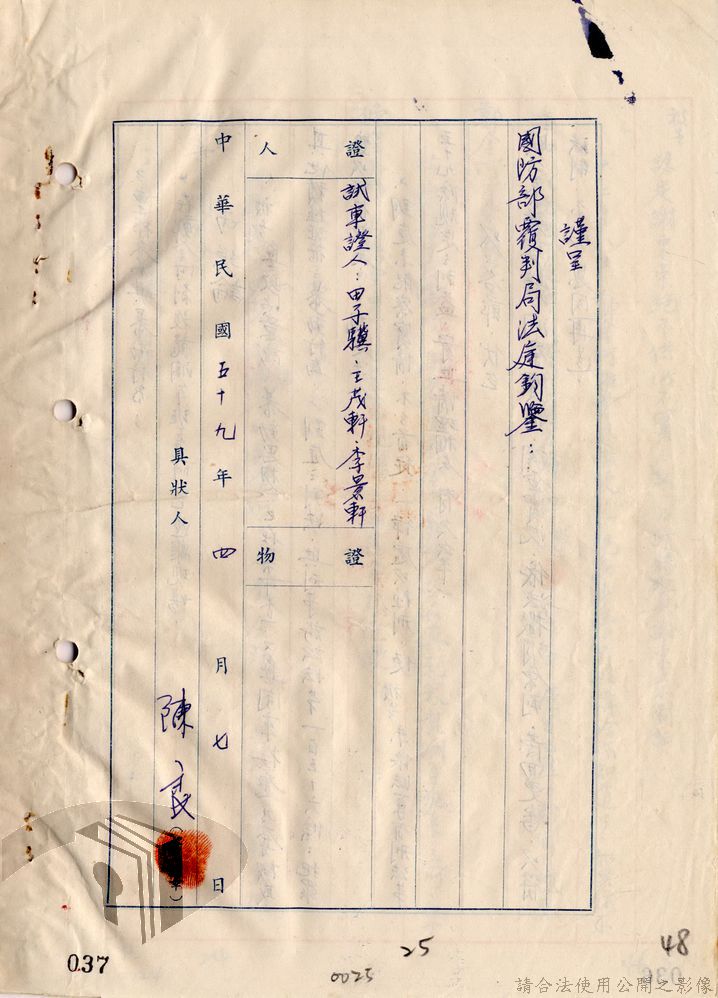 謹呈
國防部覆判局法庭鈞鑒：
證人
試車證人：田子驥、王茂軒、李景軒
證物
中華民國五十九年四月七日
具狀人
陳良
037
25
0025
48
請合法使用公開之影像